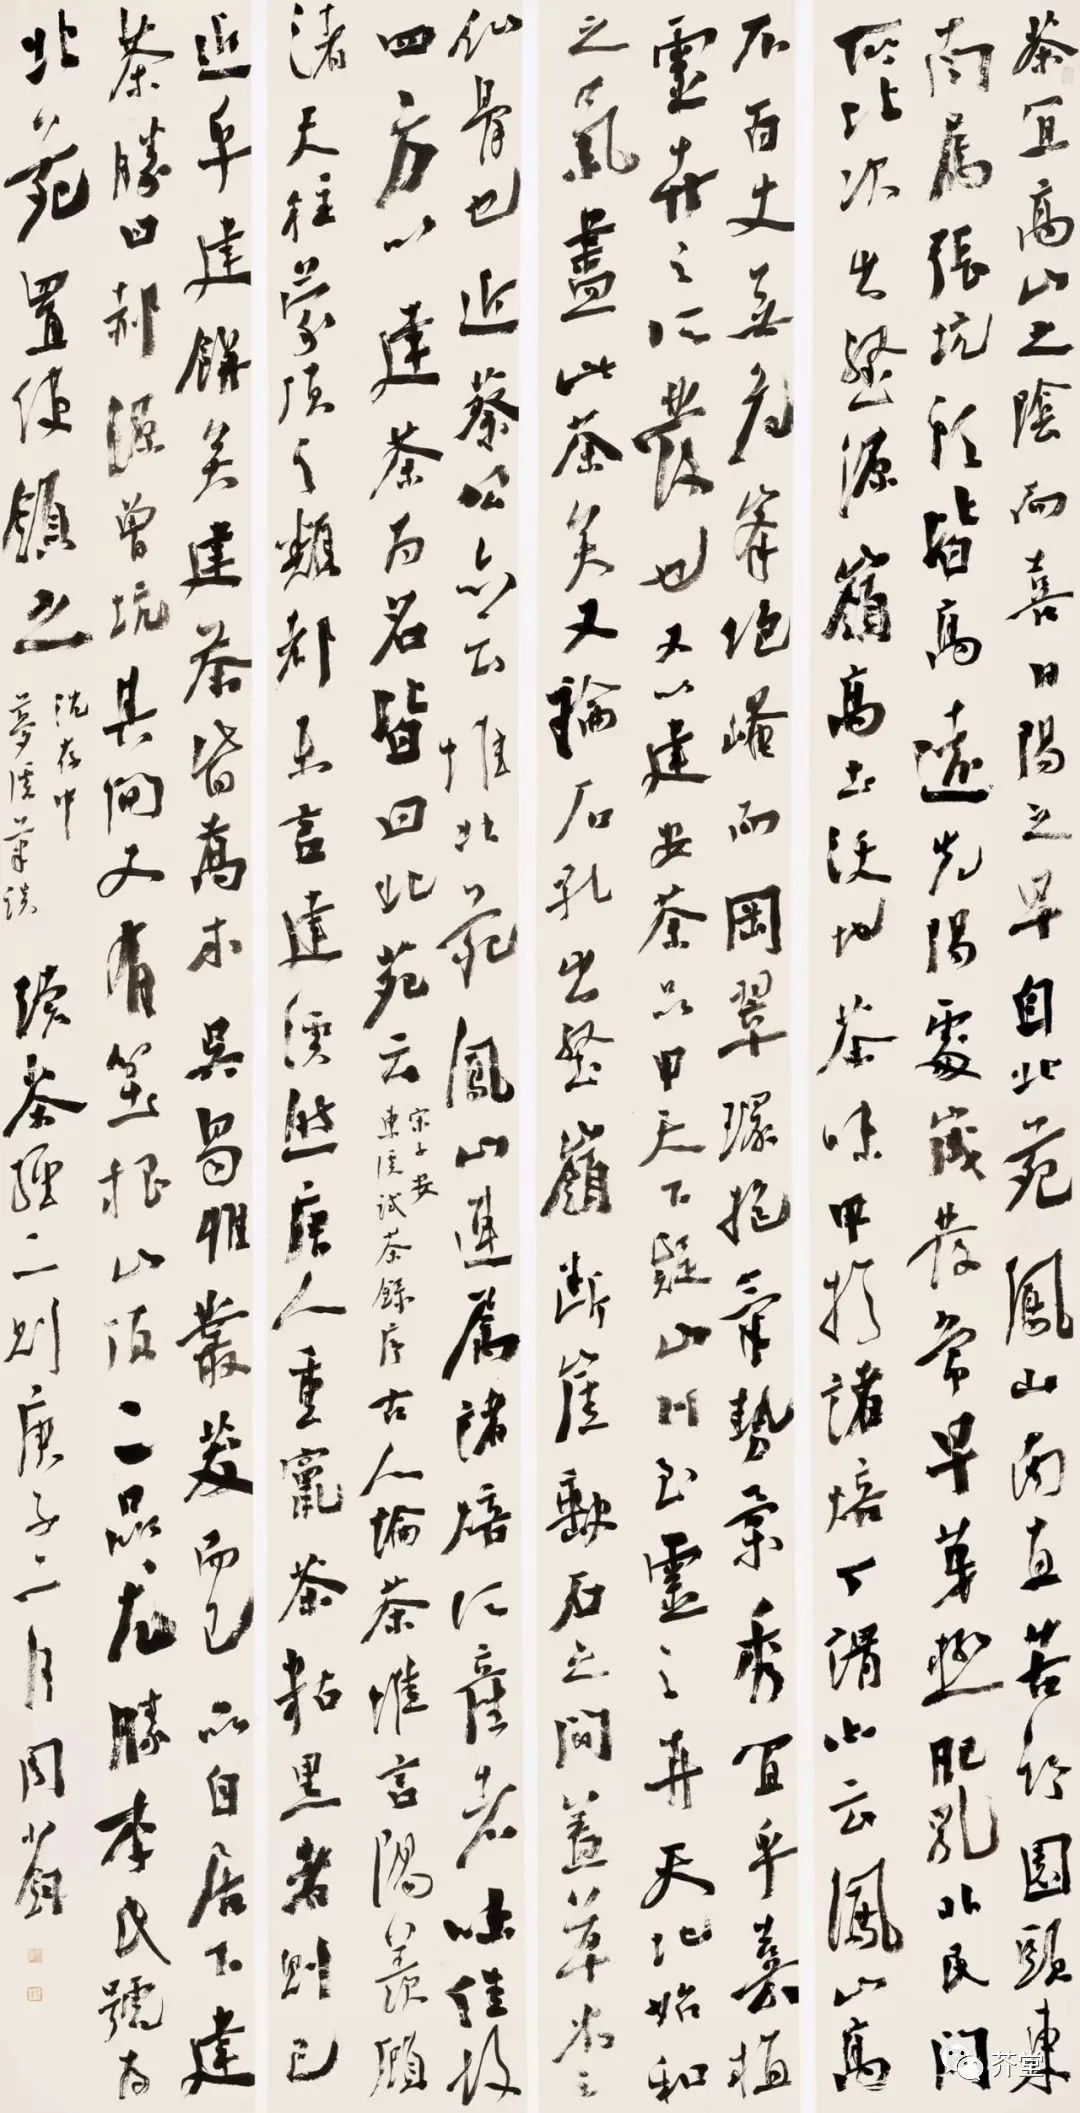 茶宜高山之陰而喜日陽之早自北苑鳳山南直苦竹園頭東
南屬張坑頭皆高遠先陽處歲發常早芽極肥乳非民間
所比次出壑源嶺高土沃地茶味甲於諸焙丁謂亦云鳳山高
不百丈無危峰絕崦而岡翠環抱氣勢柔秀宜乎嘉植
靈卉之所發也又以建安茶品甲天下疑山川至靈之卉天地始和
之氣盡此茶矣又論石乳出壑嶺斷崖缺石之間蓋草木之
仙骨也近蔡公亦云惟北苑鳳山連屬諸焙所產者味佳故
四方以建茶為名皆曰北苑云宋子安東溪試茶錄序古人論茶惟言陽羨顧
渚天柱蒙頂之類都未言建溪然唐人重竄茶粘黑者則已
近乎建餅矣建茶皆喬木吳蜀惟叢茇而已品自居下建
茶勝曰郝源曾坑其間又有坌根山頂二品尤勝李氏號為
北苑置使領之沈存中夢溪筆談續茶經二則庚子二月周
芥堂